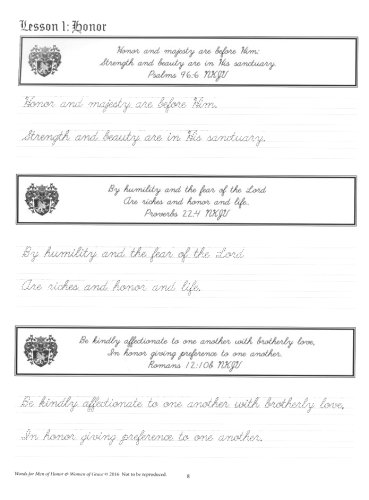 Lesson 1: Honor
Honor and majesty are before Him:
Strength and beauty are in His sanctuary.
Psalms 96:6 NKJV
Honor and majesty are before Him.
Strength and beauty are in His sanctuary.
By humility and the fear of the Lord
Are riches and honor and life.
Proverbs 22:4 NKJV
By humility and the fear of the Lord
Are riches and honor and life.
Be kindly affectionate to one another with brotherly love,
In honor giving preference to one another.
Romans 12:10b NKJV
Be kindly affectionate to one another with brotherly love,
In honor giving preference to one another.
Words for Men of Honor & Women of Grace © 2016 Not to be reproduced.
8